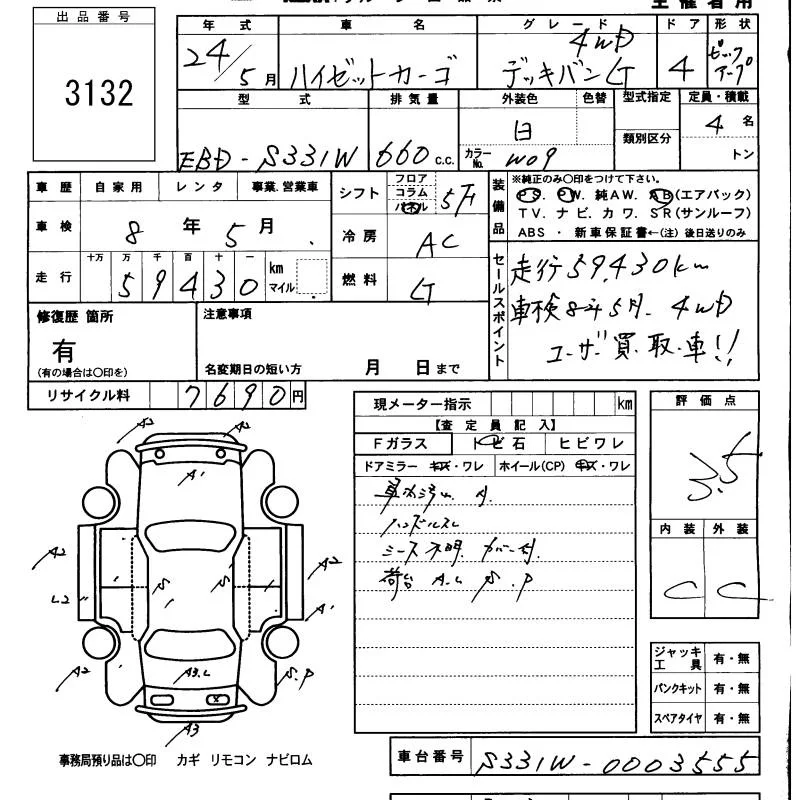 出品番号
3132
主催者用
年式 車名 グレード ドア 形状
24/5月 ハイゼットカーゴ 4WD デッキバンG 4 ピックアープ
型式 排気量 外装色 色替 型式指定 定員・積載
EBD-S331W 660c.c. 白 カラーNo. W09 類別区分 4名
トン
車歴 自家用 レンタ 事業.営業車
シフト フロア コラム パネル 5F
装備品 ※純正のみ〇印をつけて下さい。
PS. PW. 純AW. AB(エアバック)
TV. ナビ. カワ. SR(サンルーフ)
ABS ・ 新車保証書←(注) 後日送りのみ
車検 8年5月
冷房 AC
走行 十万 万 千 百 十 一
59430 km マイル
燃料 G
セールスポイント
走行59,430km
車検8年5月. 4WD
ユーザー買取車!!
修復歴 箇所
有
(有の場合は〇印を)
注意事項
名変期日の短い方 月 日まで
リサイクル料 7690円
現メーター指示 km
評価点
3.5
【査定員記入】
Fガラス トビ石 ヒビワレ
ドアミラー キズ・ワレ ホイール(CP) キズ・ワレ
ハンドルスレ
シース不明 カバー付.
荷台 A.L S.P
内装 外装
C C
A2 A2
A1
A2 S S A2
L2 A1
A2 A3.L S.P
A3
ジャッキ工具 有・無
パンクキット 有・無
スペアタイヤ 有・無
事務局預り品は〇印 カギ リモコン ナビロム
車台番号 S331W-0003555